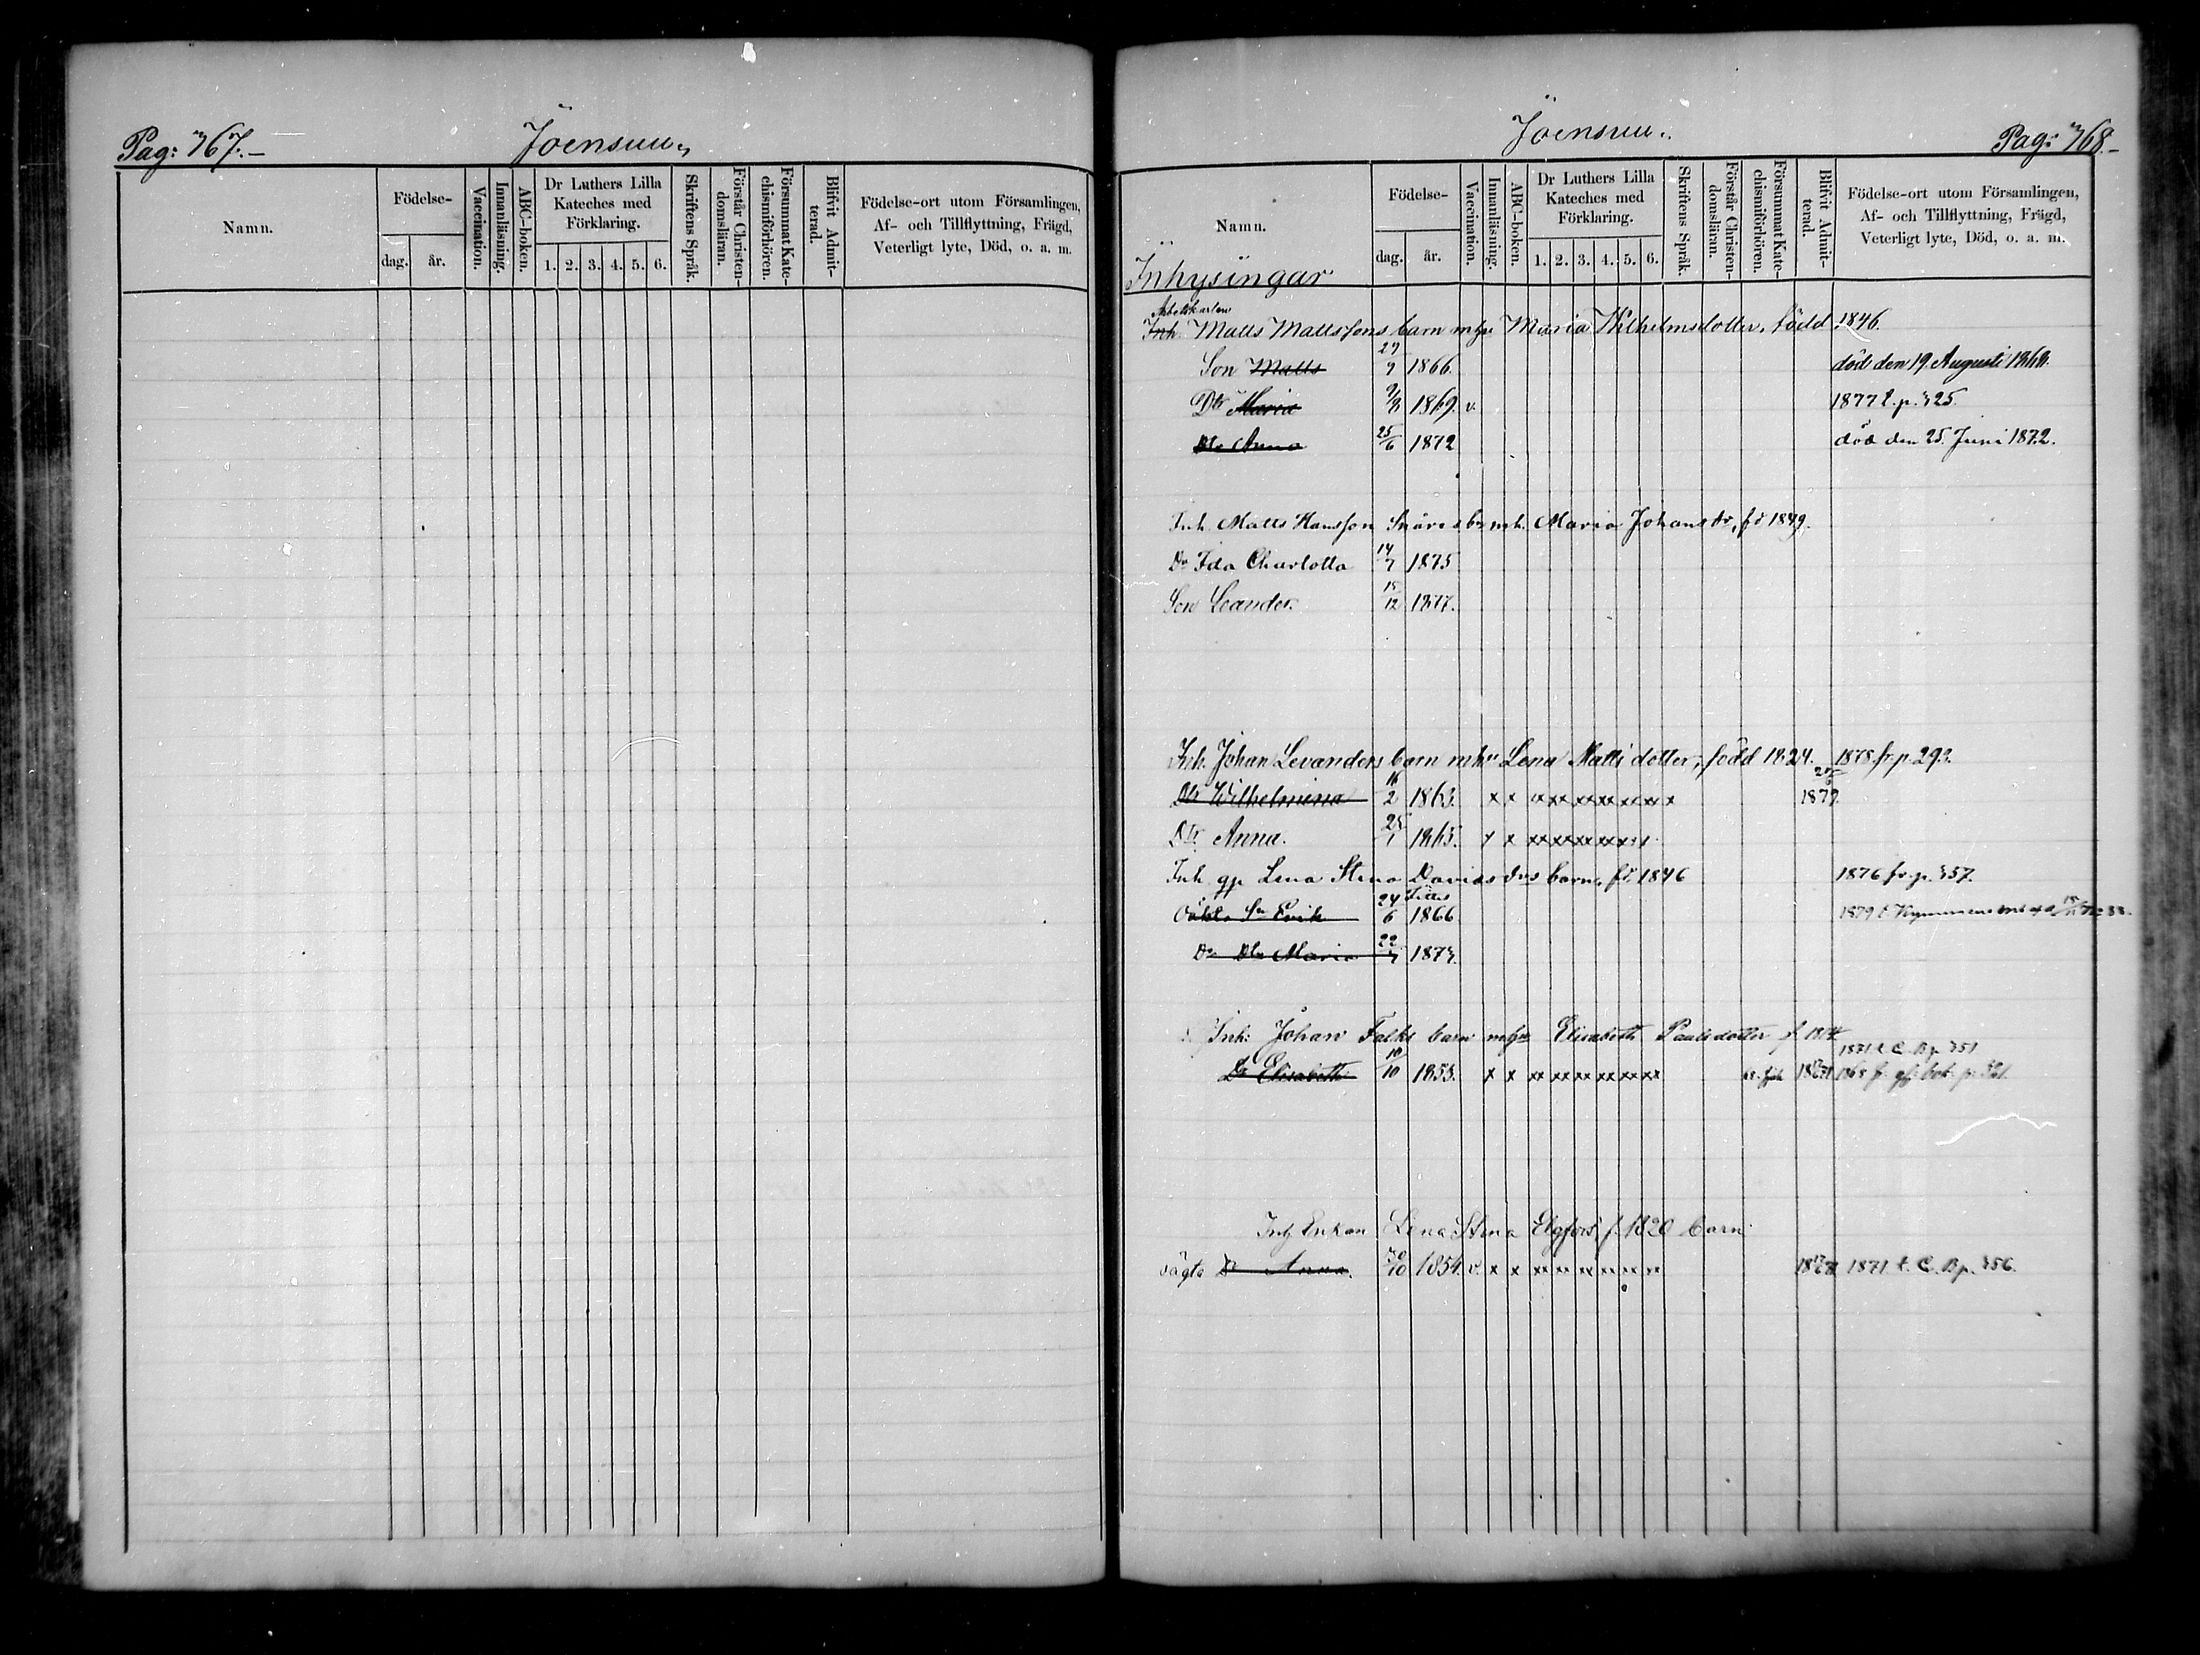 Pag: 367.
Joensuu.
Namn.
Födelse-
dag. år.
Vaccination.
Innanläsning.
ABC-boken.
Dr Luthers Lilla Kateches med Förklaring.
1. 2. 3. 4. 5. 6.
Skriftens Språk.
Förstår Christendomsläran.
Försummat Katechismiförhören.
Blifvit Admitterad.
Födelse-ort utom Församlingen,
Af- och Tillflyttning, Frägd,
Veterligt lyte, Död, o. a. m.
Joensuu.
Pag: 368.
Namn.
Födelse-
dag. år.
Vaccination.
Innanläsning.
ABC-boken.
Dr Luthers Lilla Kateches med Förklaring.
1. 2. 3. 4. 5. 6.
Skriftens Språk.
Förstår Christendomsläran.
Försummat Katechismiförhören.
Blifvit Admitterad.
Födelse-ort utom Församlingen,
Af- och Tillflyttning, Frägd,
Veterligt lyte, Död, o. a. m.
Inhysingar
Inh. Matts Mattssons barn m hu Maria Wilhelmsdotter, född 1846.
Son Matts 1866. död den 19 Augusti 1868.
Dtr Maria 1869. v. 1877 t. p. 325.
Dtr Anna 25/6 1872 död den 25. Juni 1872.
Inh. Matts Hansson m h. Maria Johansdr, fd 1849.
Dr Ida Charlotta 14/7 1875
Son Leander. 15/12 1877.
Inh. Johan Levanders barn m hu Lena Mattsdotter, född 1824. 1878 fr p. 293.
Dtr Wilhelmina 16/2 1863. x x xx xx xx xx xx xx x 1879
Dtr Anna. 25/1 1865. x x xx xx xx xx xx
Inh. gp Lena Stina Davidsdrs barn, fd. 1846 1876 fr. p. 357.
Oäkta Sn Erik 24/6 1866 1879 t.
Dr Dtr Maria 22/7 1873.
Inh: Johan Falks barn m hu Elisabeth Paulsdotter f.
1871 t. C. B p. 351
Dr Elisabeth 10/10 1853. x x xx xx xx xx xx xx
Inh Enkan Lena Stina Elgfors f. 1820 barn
oägta Dr Anna. 1854. v. x x xx xx xx xx xx xx 1871 t. C. B p. 356.